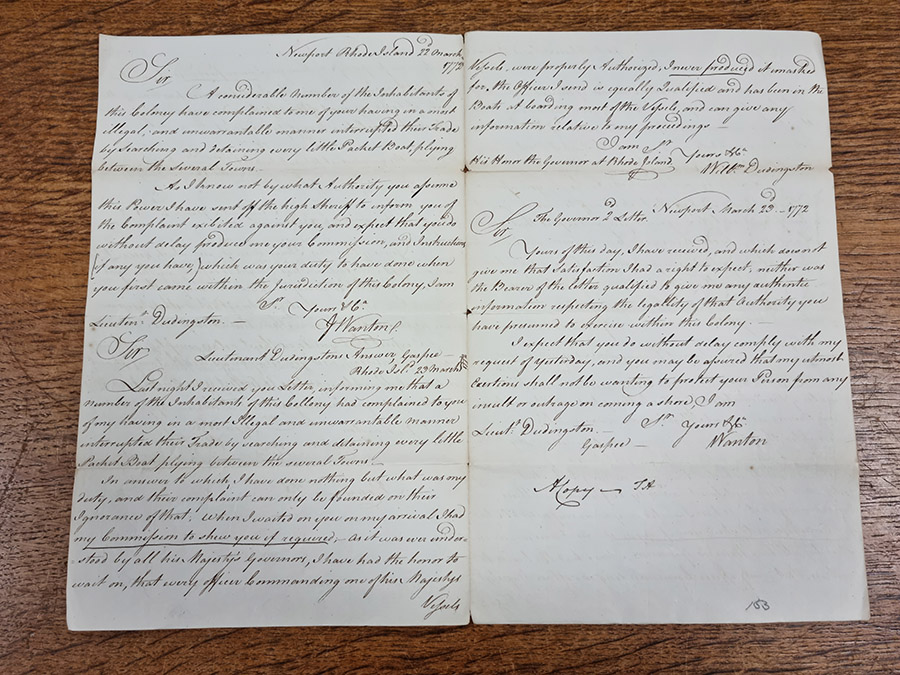 Newport Rhode Island 22d March
1772
Sir
A considerable Number of the Inhabitants of
this Coloney have complained to me of your having in a most
illegal and unwarrantable manner interrupted their Trade
by Searching and detaining every little Packet Boat plying
between the Several Towns —
As I know not by what Authority you assume
this Power I have sent off the high Sheriff to inform you of
the Complaint exibited against you, and expect that you do
without delay produce me your Commission, and Instructions
(if any you have,) which was your duty to have done when
you first came within the Jurisdiction of this Colony, I am
Sr. Yours &ca
Lieutent. Dudingston. — J Wanton
Lieutenant Dudingstons Answer Gaspee —
Rhode Isld. 23 March
Sir
Last night I received you Letter, informing me that a
number of the Inhabitants of this Collony had complained to you
of my having in a most Illegal and unwarrantable manner
interrupted their Trade by searching and detaining every little
Packet Boat plying between the several Towns —
In answer to which I have done nothing but what was my
duty, and their complaint can only be founded on their
Ignorance of that. When I waited on you on my arrival I had
my Commission to shew you if required, as it was ever under-
stood by all his Majesty's Governors, I have had the honor to
wait on, that every officer Commanding one of his Majestys
Vessels
Vessels, were properly Authorized, I never produced it unasked
for, the Officer I send is equally Qualified and has been in the
Boats at boarding most of the Vessels, and can give any
information relative to my proceedings —
I am Sr.
His Honor the Governor at Rhode Island Yours &ca
Willm Dudingston
The Governor 2d Letter. Newport March 23d — 1772
Sir,
Yours of this day, I have received, and which does not
give me that Satisfaction I had a right to expect, neither was
the Bearer of the letter qualified to give me any authentic
information respecting the legallity of that Authority you
have presumed to Exercise within this Colony. —
I expect that you do without delay comply with my
request of Yesterday, and you may be assured that my utmost
Exertions shall not be wanting to protect your Person from any
insult or outrage on coming a shore, I am
Lieut. Dudingston — Sr. Yours &ca
Gaspee — J Wanton
A Copy —
153